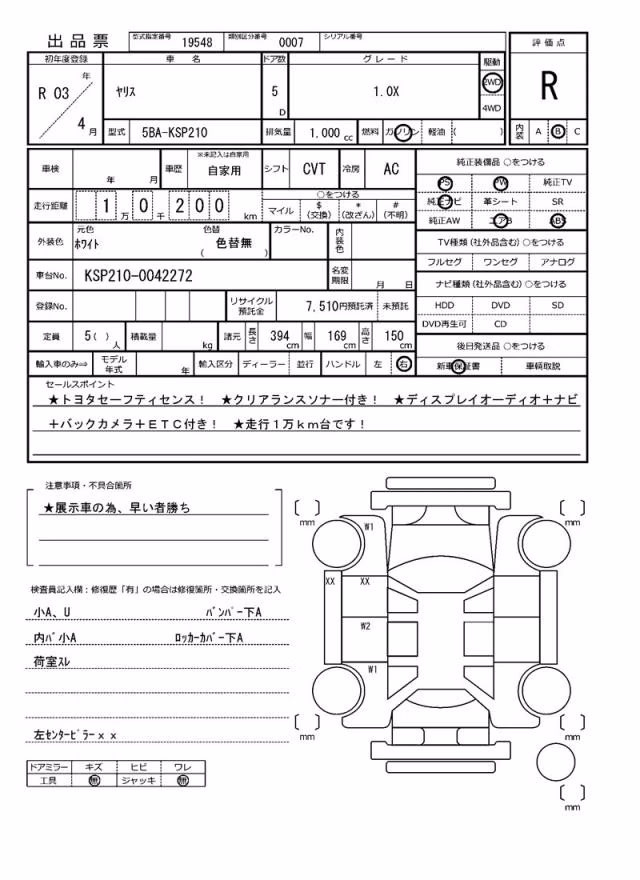 出品票
型式指定番号 19548 類別区分番号 0007 シリアル番号
評価点
R
初年度登録 車名 ドア数 グレード 駆動
R 03 年 4 月
ヤリス
5 D
1.0X
2WD
4WD
型式 5BA-KSP210 排気量 1.000 cc 燃料 ガソリン 軽油 ( )
内装 A B C
車検 年 月 車歴 ※未記入は自家用 自家用 シフト CVT 冷房 AC
走行距離 1 万 0 千 2 0 0 km
○をつける
マイル $ (交換) * (改ざん) # (不明)
外装色 元色 ホワイト 色替 ( 色替無 ) カラーNo. 内装色
車台No. KSP210-0042272 名変期限 月 日
登録No. リサイクル預託金 7,510円預託済 未預託
定員 5( )人 積載量 kg 諸元 長さ 394 cm 幅 169 cm 高さ 150 cm
輸入車のみ⇒ モデル年式 年 輸入区分 ディーラー 並行 ハンドル 左 右
純正装備品 ○をつける
PS PW 純正TV
純正ナビ 革シート SR
純正AW エアB ABS
TV種類 (社外品含む) ○をつける
フルセグ ワンセグ アナログ
ナビ種類 (社外品含む) ○をつける
HDD DVD SD
DVD再生可 CD
後日発送品 ○をつける
新車保証書 車輌取説
セールスポイント
★トヨタセーフティセンス! ★クリアランスソナー付き! ★ディスプレイオーディオ+ナビ
+バックカメラ+ETC付き! ★走行1万km台です!
注意事項・不具合箇所
★展示車の為、早い者勝ち
検査員記入欄:修復歴「有」の場合は修復箇所・交換箇所を記入
小A、U バンパー下A
内バ小A ロッカーカバー下A
荷室スレ
左センターピラーxx
ドアミラー キズ ヒビ ワレ
工具 無 ジャッキ 無
mm
mm
W1
XX XX
W2
W1
mm
mm
mm